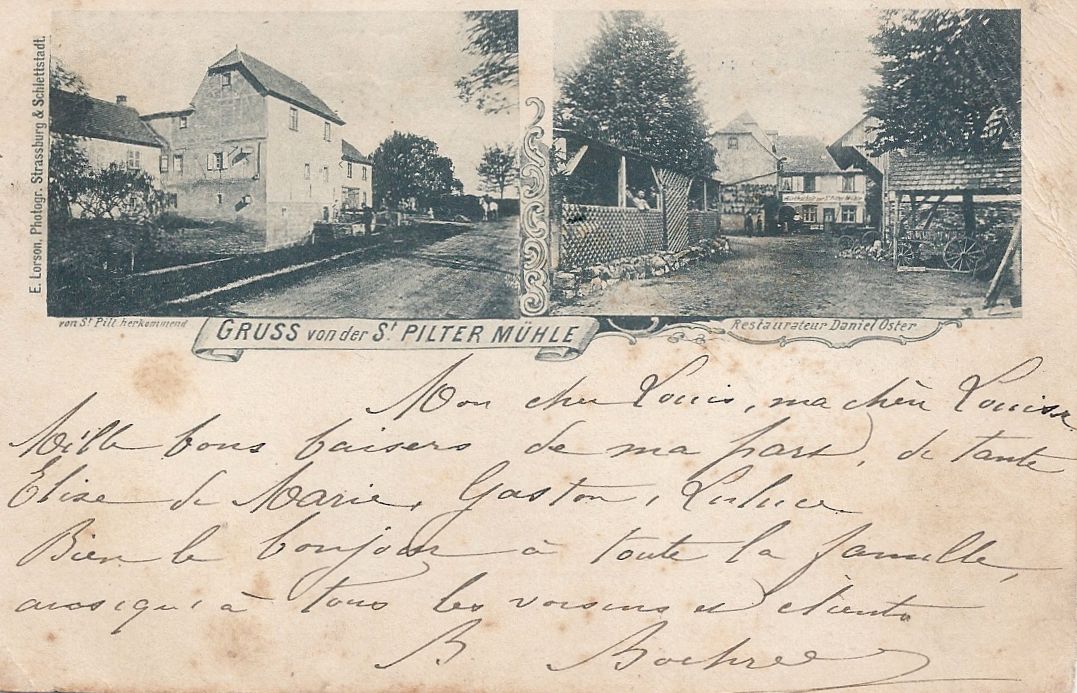 E. Lorson, Photogr. Strassburg & Schlettstadt.
von St Pilt herkommend
GRUSS von der St. PILTER MÜHLE
Restaurateur Daniel Oster
Mon cher Louis, ma chèr Louise
Mille bons baisers de ma part, de tante
Elise de Marie, Gaston, Luluce
Bien le bonjour à toute la famille,
à tous les voisins et clients
B